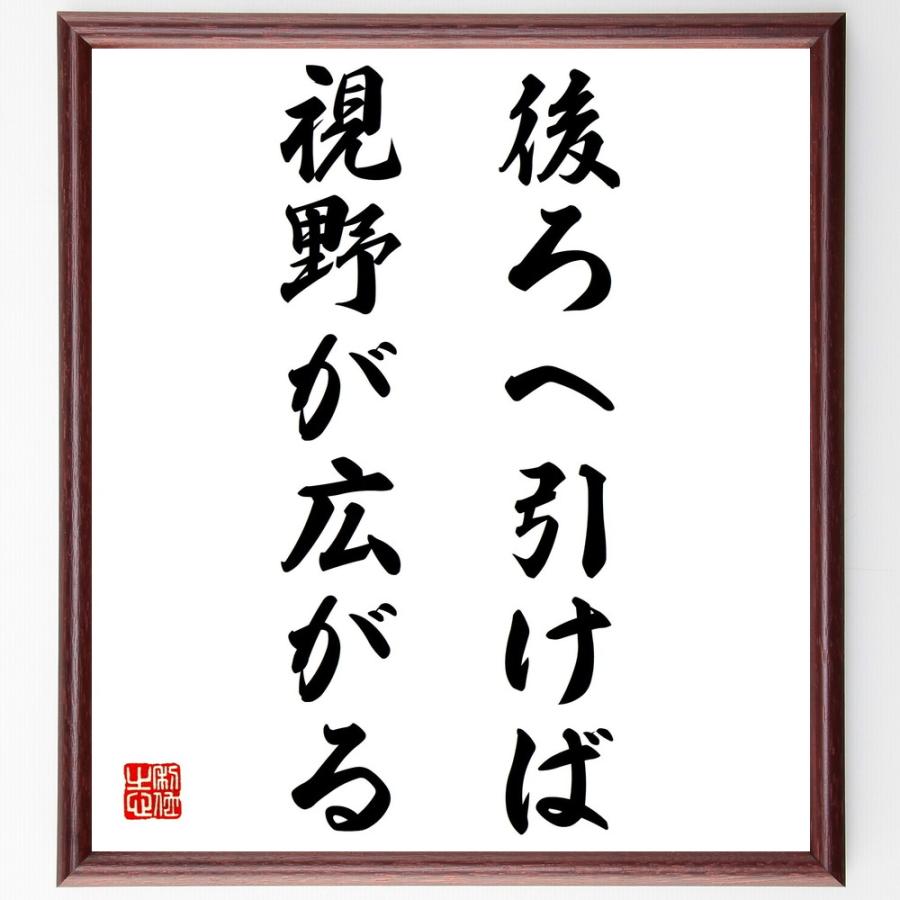 後ろへ引けば
視野が広がる